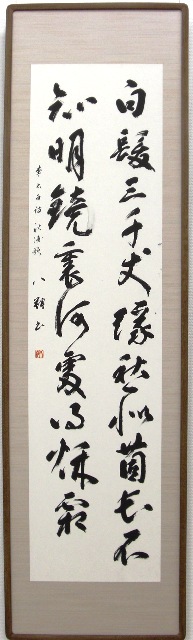 白髪三千丈縁愁似箇長不
知明鏡裏何處得秋霜
李太白詩 秋浦歌 八